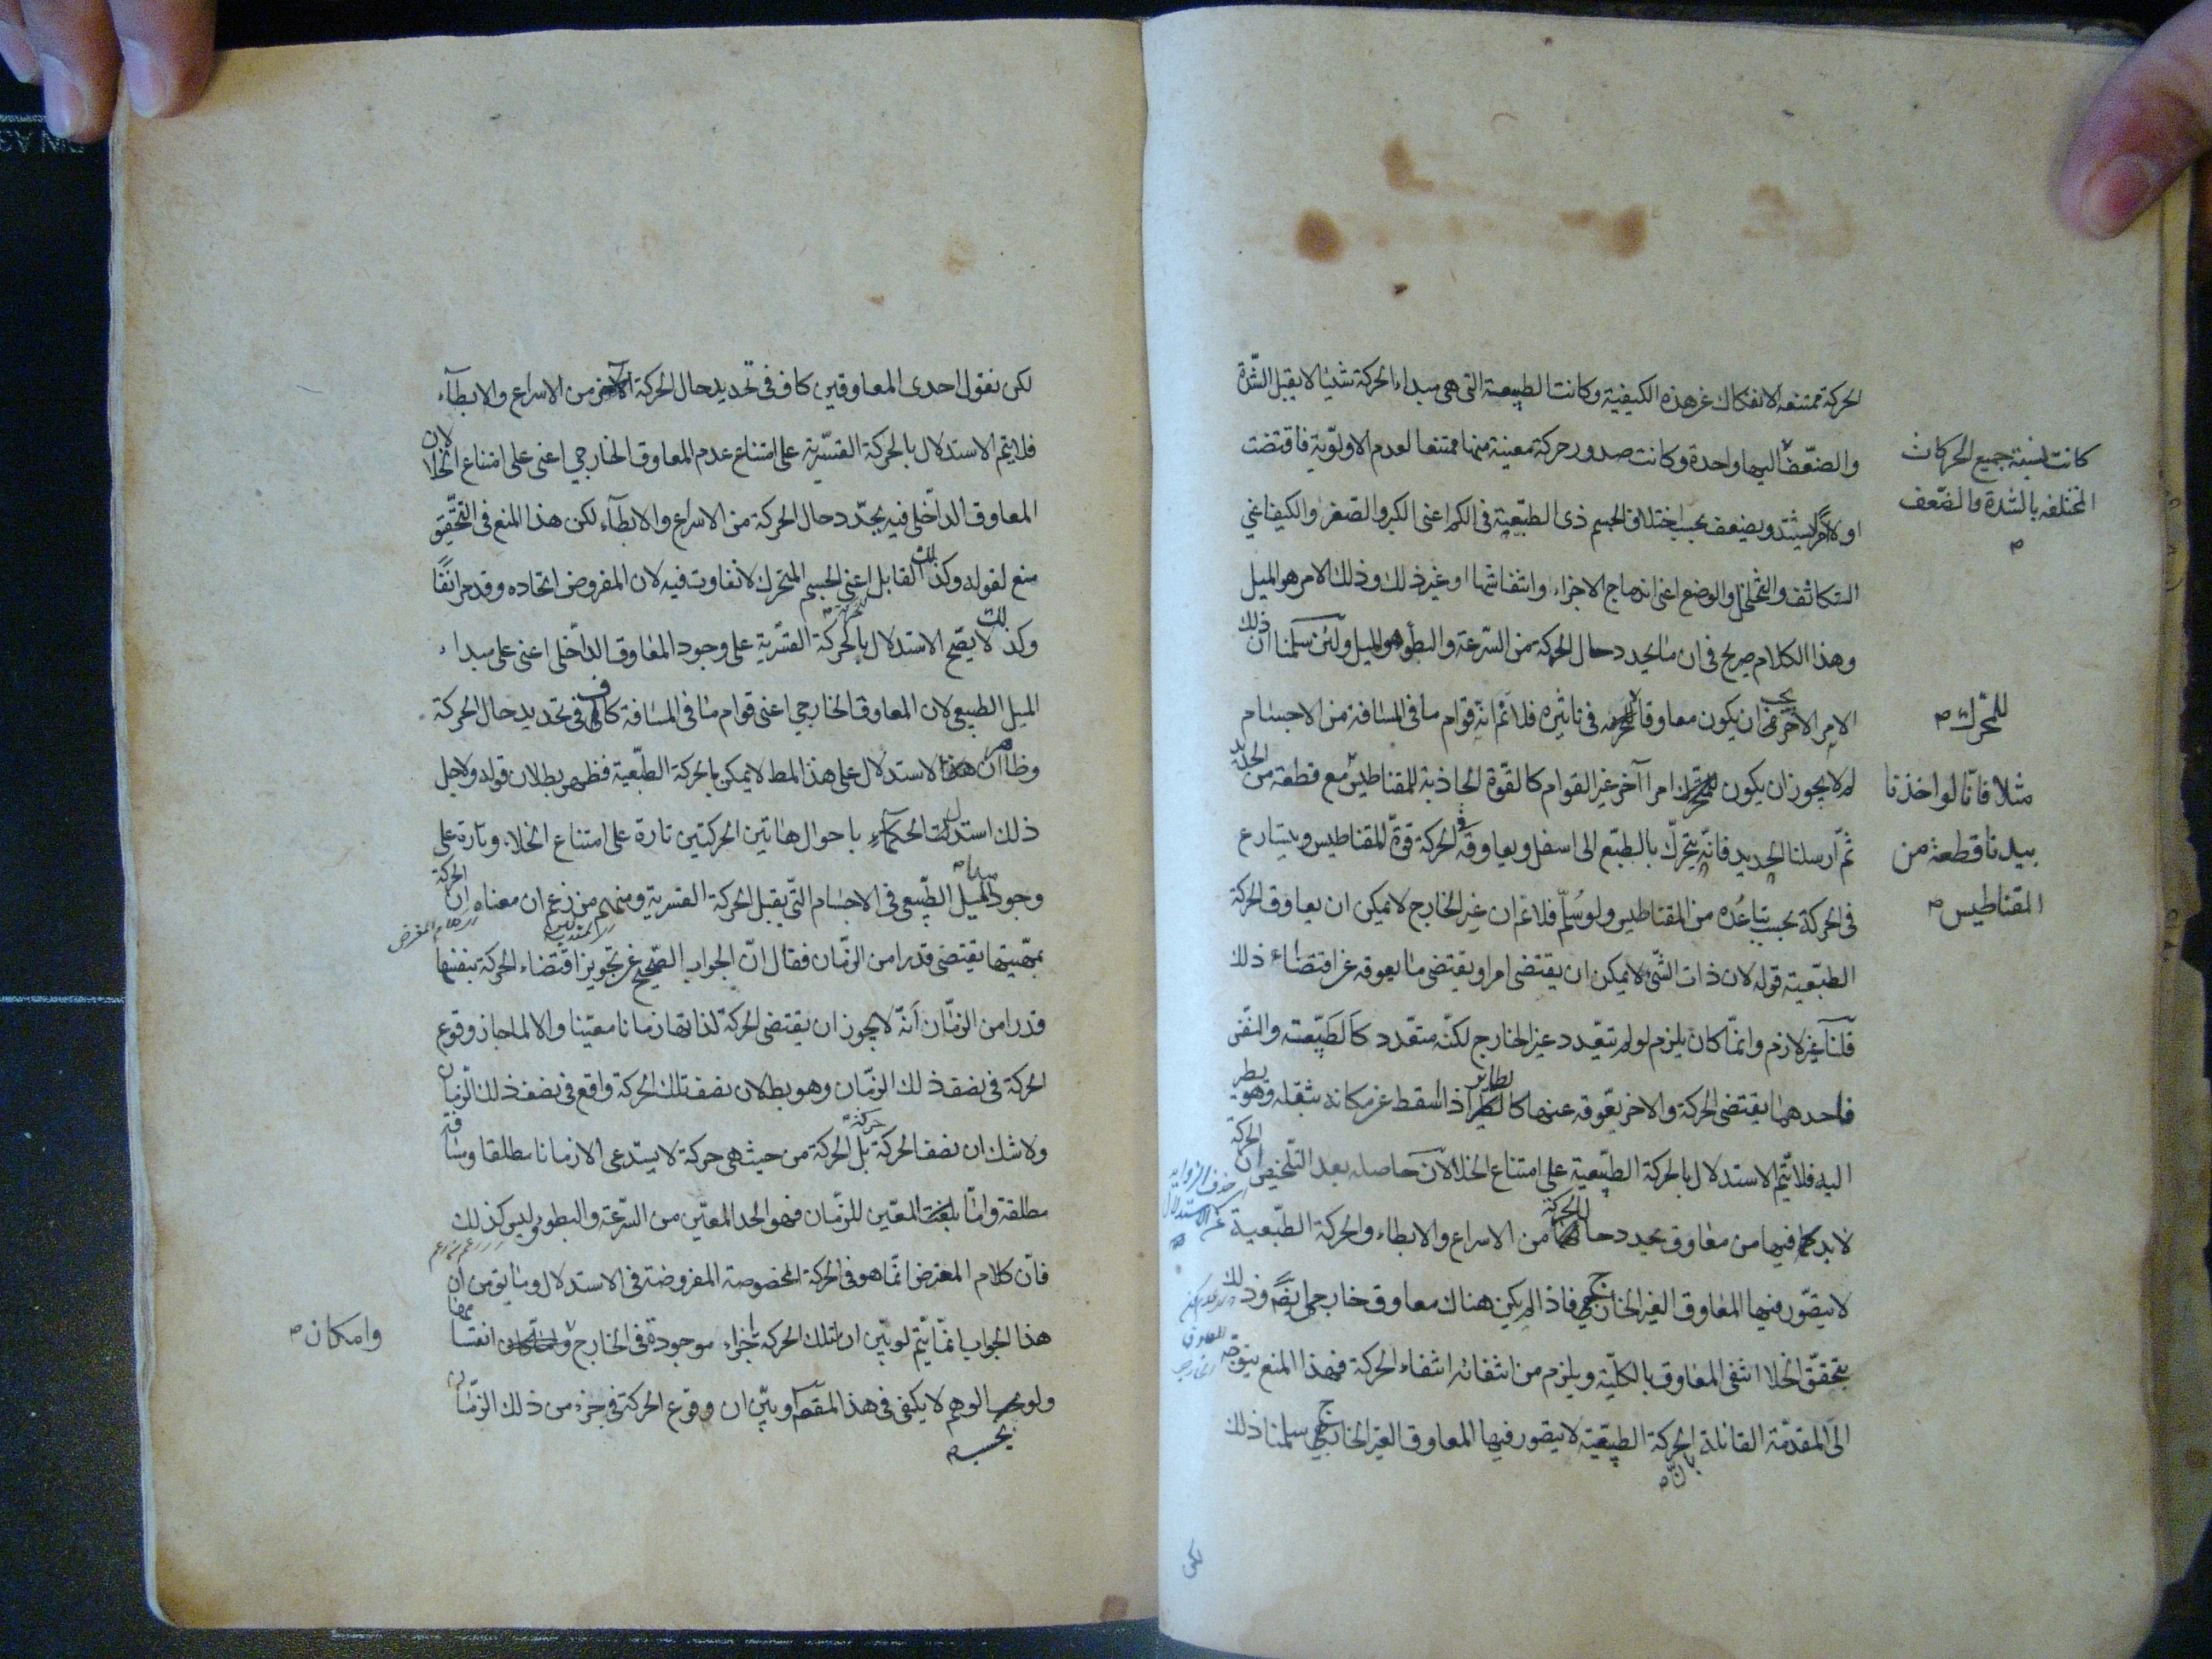 الحركة ممتنعة الانفكاك عن هذه الكيفية وكانت الطبيعة التى هى مبداء الحركة شيئا لا يقبل الشدّة
والضعف اليها واحدة وكانت صدور حركة معينة منها ممتنعا لعدم الاولوية فاقتضت
كانت نسبة جميع الحركات
المختلفه بالشدة والضعف
اولا امرا يشتد ويضعف بحسب اختلاف الجسم ذى الطبيعة فى الكم اعنى الكبر والصغر والكيف اعنى
التكاثف والتخلخل والوضع اعنى اندماج الاجزاء وانتفاشها او غير ذلك وذلك الامر هو الميل
وهذا الكلام صريح فى ان ما يحدد حال الحركة من السرعة والبطؤ هو الميل ولئن سلمنا ان ذلك
الامر الاخر يجب ان يكون معاوقا للمحرك فى تاثيره فلا نم انه قوام ما فى المسافة من الاجسام
للمحرك
لم لا يجوز ان يكون امرا آخر غير القوام كالقوة الجاذبة للمقناطيس مع قطعة من الحديد
مثلا فانّا لو اخذنا
بيدنا قطعة من
المقناطيس
ثم ارسلنا الحديد فانه يتحرك بالطبع الى اسفل ويعاوقه فى الحركة قوة المقناطيس ويتسارع
فى الحركة بحسب تباعُده من المقناطيس ولو سُلّم فلا نم ان غير الخارج لا يمكن ان يعاوق الحركة
الطبيعية قوله لان ذات الشئ لا يمكن ان يقتضى امرا ويقتضى ما يعوقه عن اقتضاء ذلك
قلنا غير لازم وانما كان يلزم لو لم يتعدد غير الخارج لكنه متعدد كالطبيعة والنفس
فاحدهما يقتضى الحركة والاخر يعوقه عنها كالطاير اذا سقط عن مكانه بثقله وهو يطير
اليه فلا يتم الاستدلال بالحركة الطبيعية على امتناع الخلا لان حاصله بعد التلخيص ان الحركة
لا بد فيها من معاوق يحدد حال الحركة من الاسراع والابطاء والحركة الطبيعية
لا يتصور فيها المعاوق الغير الخارجي فاذا لم يكن هناك معاوق خارجي ايضا وذلك
بتحقق الخلا انتفى المعاوق بالكلية ويلزم من انتفائه انتفاء الحركة فهذا المنع يتوجه
الى المقدمة القائلة بان الحركة الطبيعية لا يتصور فيها المعاوق الغير الخارجي سلمنا ذلك
لكن
لكن نقول احدى المعاوقين كاف فى تحديد حال الحركة من الاسراع والابطآء
فلا يتم الاستدلال بالحركة القسرية على امتناع عدم المعاوق الخارجي اعنى على امتناع الخلا لان
المعاوق الداخلى فيه يحدد حال الحركة من الاسراع والابطآء لكن هذا المنع فى التحقيق
منع لقوله وكذلك القابل اعنى الجسم المتحرك لا تفاوت فيه لان المفروض اتحاده وقد مر انفًا
وكذلك لا يصح الاستدلال بالحركة القسرية على وجود المعاوق الداخلى اعنى على مبداء
الميل الطبيعى لان المعاوق الخارجي اعنى قوام ما فى المسافة كاف فى تحديد حال الحركة
وظاهر ان الاستدلال على هذا المط لا يمكن بالحركة الطبيعية فظهر بطلان قوله ولاجل
ذلك استدلت الحكماء باحوال هاتين الحركتين تارة على امتناع الخلاء وتارة على
وجود مبداء الميل الطبيعى فى الاجسام التى يقبل الحركة القسرية ومنهم من زعم ان معناه ان الحركة
بمهيتها يقتضى قدرا من الزمان فقال انّ الجواب الصحيح عن تجويز اقتضاء الحركة بنفسها
قدرا من الزمان أنه لا يجوز ان يقتضى الحركة لذاتها زمانا معينا والا لما جاز وقوع
الحركة فى نصف ذلك الزمان وهو بط لان نصف تلك الحركة واقع فى نصف ذلك الزمان
ولا شك ان نصف الحركة حركة بل الحركة من حيث هى حركة لا يستدعى الا زمانا مطلقا ومسافة
مطلقة واما المعين للزمان فهو الحد المعين من السرعة والبطؤ وليس كذلك
فان كلام المعترض انما هو فى الحركة المخصوصة المفروضة فى الاستدلال وما يوهن ان
هذا الجواب انما يتم لو بيّن ان لتلك الحركة اجزاء موجودة فى الخارج
وامكان
ولو بحسب الوهم لا يكفى فى هذا المقام او بيّن ان وقوع الحركة فى جزء من ذلك الزمان